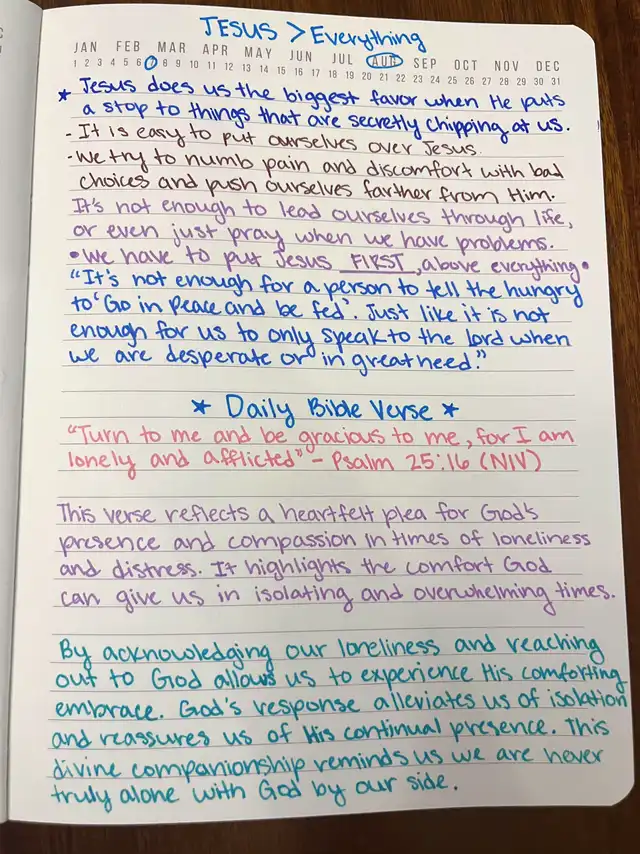 JESUS > Everything
JAN FEB MAR APR MAY JUN JUL AUG SEP OCT NOV DEC
1 2 3 4 5 6 7 8 9 10 11 12 13 14 15 16 17 18 19 20 21 22 23 24 25 26 27 28 29 30 31
* Jesus does us the biggest favor when He puts
a stop to things that are secretly chipping at us.
- It is easy to put ourselves over Jesus.
- We try to numb pain and discomfort with bad
choices and push ourselves farther from Him.
It's not enough to lead ourselves through life,
or even just pray when we have problems.
• We have to put Jesus FIRST, above everything •
"It's not enough for a person to tell the hungry
to 'Go in Peace and be fed'. Just like it is not
enough for us to only speak to the lord when
we are desperate or in great need."
* Daily Bible Verse *
"Turn to me and be gracious to me, for I am
lonely and afflicted" - Psalm 25:16 (NIV)
This verse reflects a heartfelt plea for God's
presence and compassion in times of loneliness
and distress. It highlights the comfort God
can give us in isolating and overwhelming times.
By acknowledging our loneliness and reaching
out to God allows us to experience His comforting
embrace. God's response alleviates us of isolation
and reassures us of His continual presence. This
divine companionship reminds us we are never
truly alone with God by our side.